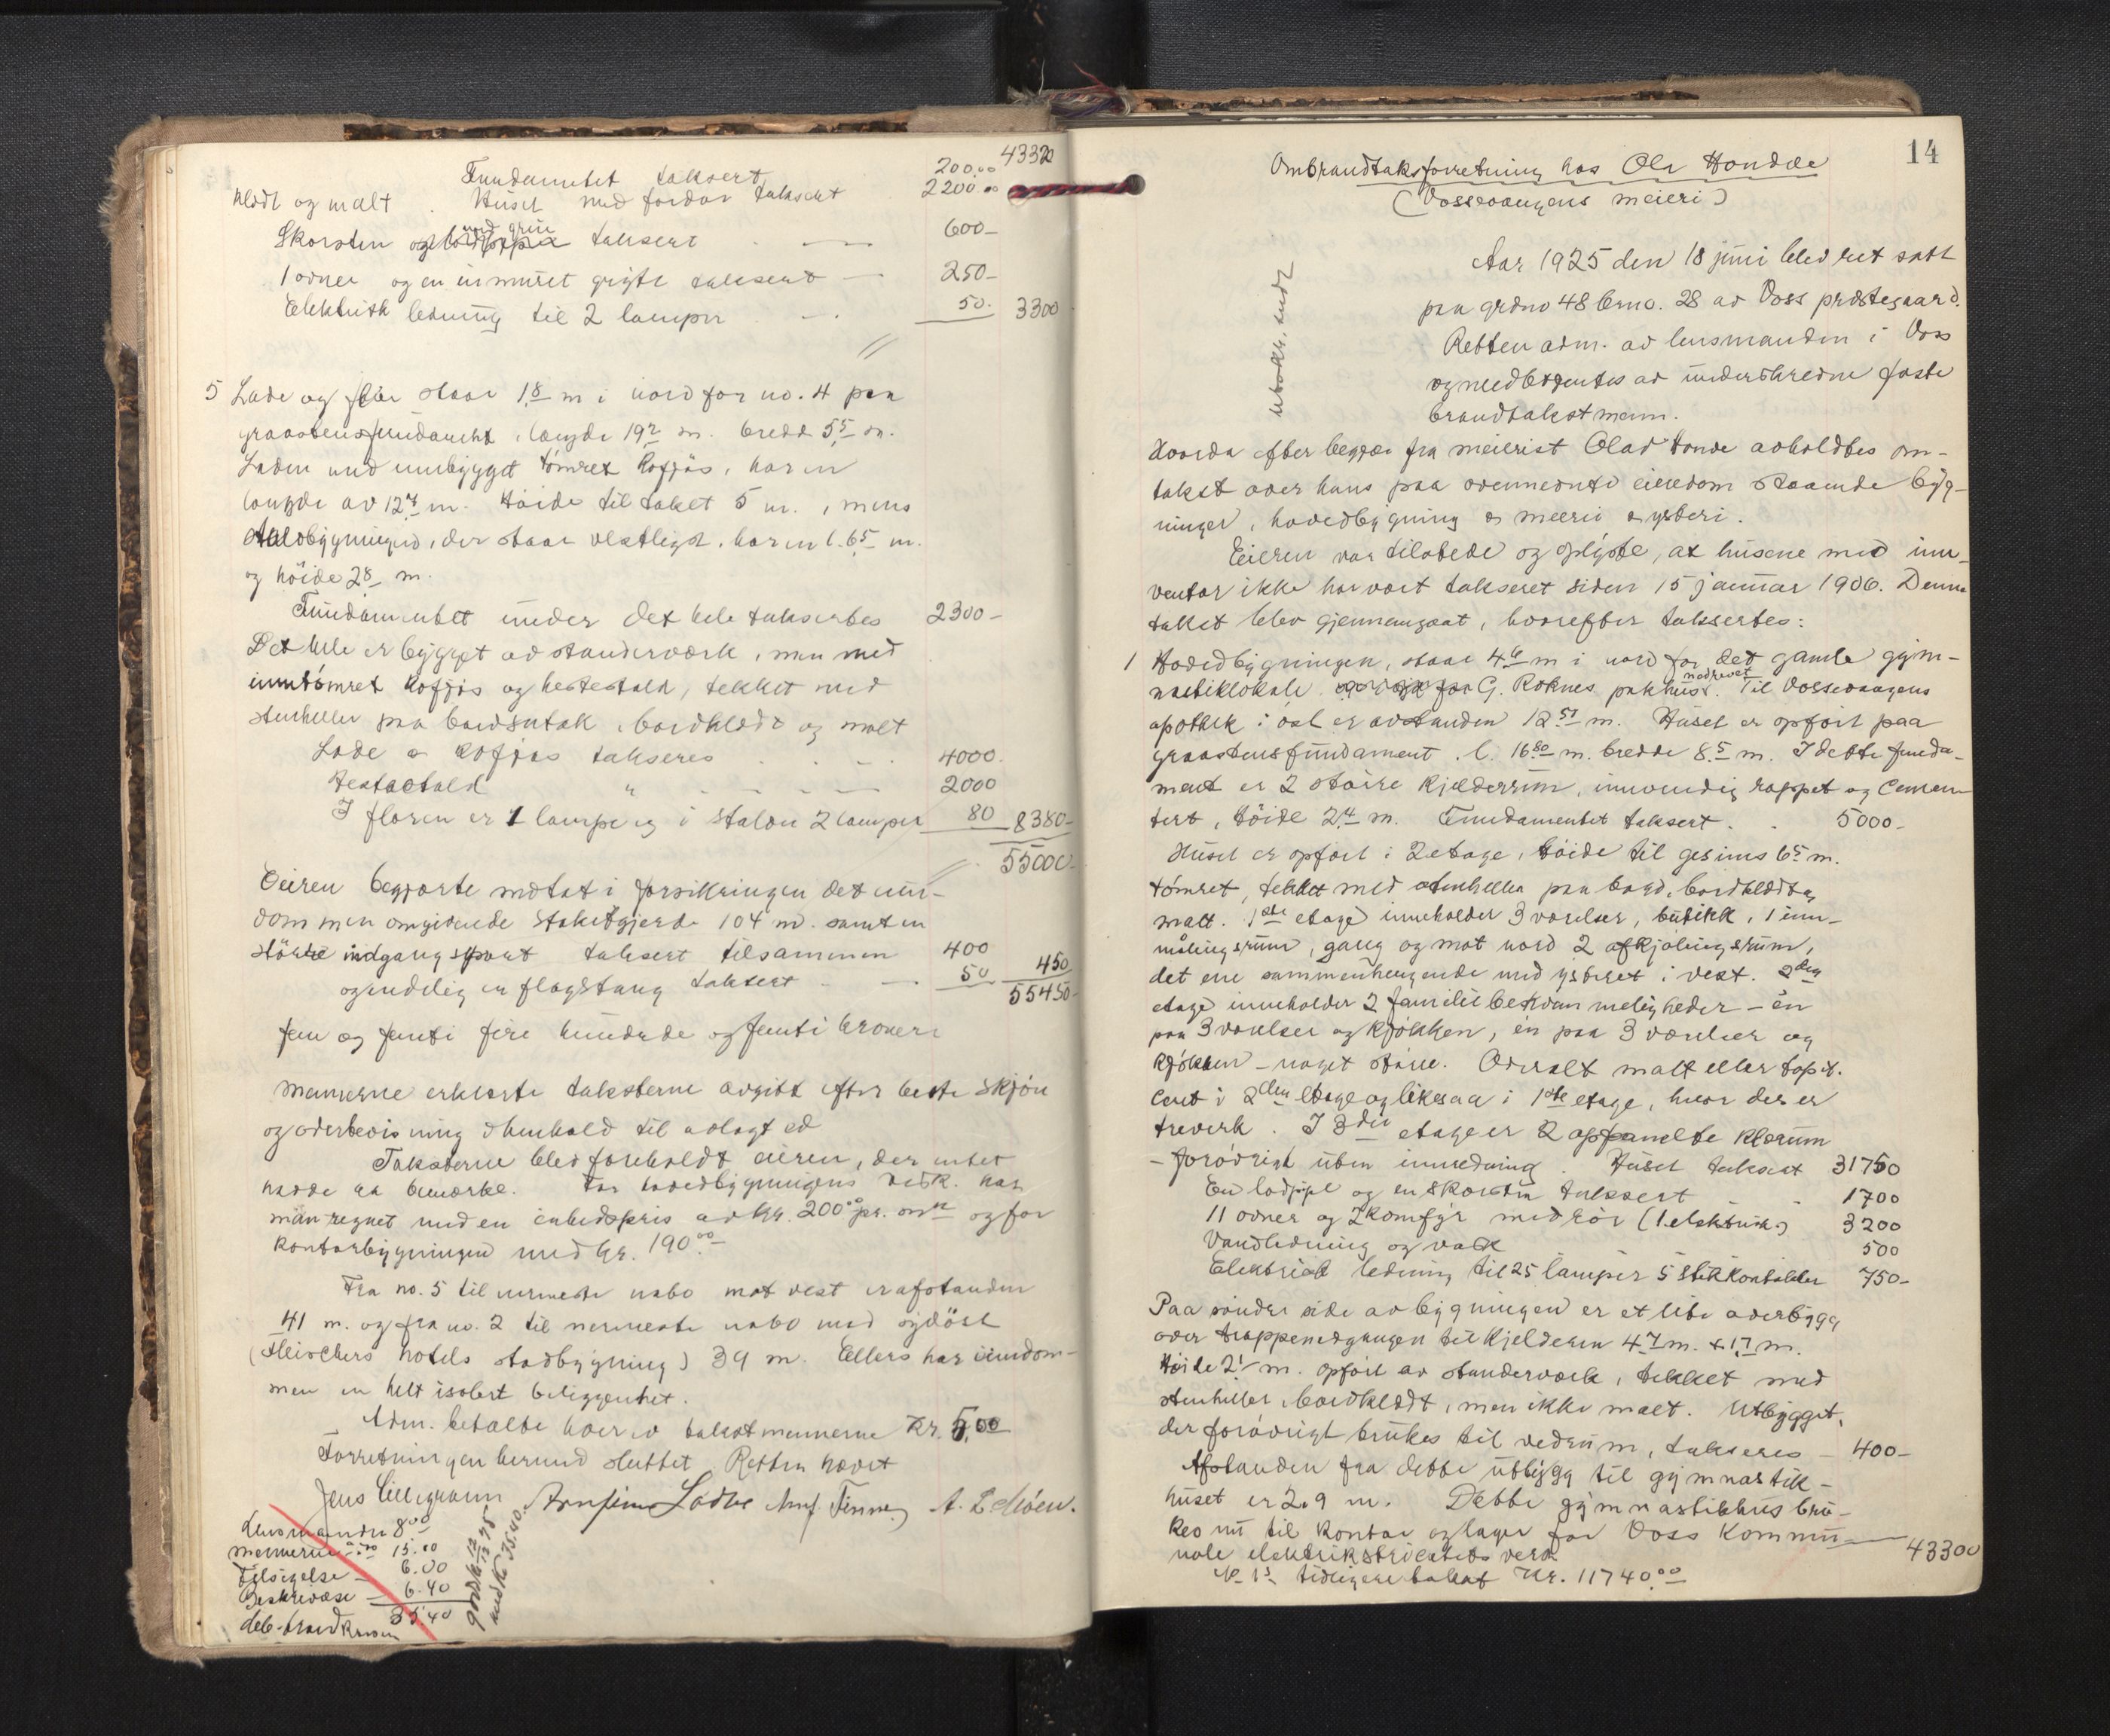 43320
Fundamentet taksert 200.00
klædt og malt. Huset med fordør taksert 2200.00
Skorsten og med grue taksert 600-
1 ovner og en inmuret gryte taksert 250-
Elektrisk ledning til 2 lamper 50. 3300
5 Lade og flor staar 18 m i nord for no. 4 paa
graastensfundament, længde 19² m. bredd 5⁵ m.
Laden med innbygget tømret kofjøs, har en
længde av 12⁴ m. Høide til taket 5 m., mens
staldbygningen, der staar vestligst, har en l. 6⁵ m.
og høide 2⁸ m.
Fundamentet under det hele taksertes 2300-
Det hele er bygget av standerværk, men med
inntømret kofjøs og hestestald, tekket med
stenheller paa bordsutak, bordklædt og malt
Lade & kofjøs takseres 4000.
Hestestald " 2000
I floren er 1 lampe og i stalden 2 lamper 80 8380-
55000-
Eieren begjærte mottat i forsikringen det eien-
dommen omgivende Stakitgjerde 104 m. samt en
større indgangsport taksert tilsammen 400
og endelig en flagstang taksert 50 450
55450-
fem og femti fire hundrede og femti kroner
Mennerne erklærte taksterne avgitt efter beste skjøn
og overbevisning i henhold til avlagt ed
Taksterne blev foreholdt eieren, der intet
hadde at bemærke. For hovedbygningens vedk. har
man regnet med en enhedspris av kr. 200⁰⁰ pr. m² og for
kontorbygningen med kr. 190.⁰⁰
Fra no. 5 til nermeste nabo mot vest er afstanden
41 m. og fra no. 2 til nermeste nabo mod sydöst
(Fleischers hotels stadbygning) 39 m. Ellers har eiendom-
men en helt isolert beliggenhet.
Adm. betalte hver av takstmennerne kr. 5,00
Forretningen hermed sluttet. Retten hævet
Jens Lillegraven A. L. Moen.
Lensmanden 8⁰⁰
Mennerne 15.00
Tilsigelse 6.00
Beskrivelse 6.40
35.40
14
Ombrandtaksforretning hos Ola Hondve
(Vossevangens meieri)
Aar 1925 den 18 juni blev ret satt
paa grdno 48 brno. 28 av Voss prestegaard.
Retten adm. av lensmanden i Voss
og medbetjentes av underskrevne faste
brandtakstmenn.
Hvorda efter begjær fra meierist Olav Honde avholdtes om-
takst over hans paa ovennevnte eiendom staaende byg-
ninger, hovedbygning & meeri & ysteri.
Eieren var tilstede og oplyste, at husene med inn-
ventar ikke har vært taksert siden 15 januar 1906. Denne
takst blev gjennemgaat, hvorefter taksertes:
1 Hovedbygningen, staar 4⁶ m i nord for det gamle gym-
nastiklokale G. Roknes nedrevet pakhus. Til Vossevangens
apothek i øst er avstanden 12⁵¹ m. Huset er opført paa
graastensfundament, l. 16⁸⁰ m. bredde 8⁵ m. I dette funda-
ment er 2 større kjelderrum, innvendig rappet og Cemen-
tert, høide 2⁴ m. Fundamentet taksert 5000-
Huset er opført i 2 etage, høide til gesims 6⁵ m.
tømret, tekket med stenheller paa bord, bordklædt og
malt. 1ste etage inneholder 3 værelser, butikk, 1 inn-
målingsrum, gang og mot nord 2 afkjølingsrum,
det ene sammenhengende med ysteriet i vest. 2den
etage inneholder 2 familiebekvemmeligheder - én
paa 3 værelser og kjøkken, én paa 3 værelser og
kjøkken - noget større. Overalt malt eller tapet-
cert i 2den etage og likesaa i 1ste etage, hvor der er
treverk. I 3die etage er 2 oppanelte klærum
- forøvrigt uten innredning. Huset taksert 31750
En ladpipe og en skorsten taksert 1700
11 ovner og 2 komfyr med rör (1 elektrisk) 3200
Vandledning og vask 500
Elektrisk ledning til 25 lamper 5 stikkontakter 750-
Paa søndre side av bygningen er et lite overbygg
over trappenedgangen til kjelderen 4⁷ m. x 1⁷ m.
Høide 2¹ m. opført av standerværk, tekket med
stenheller, bordklædt, men ikke malt. Utbygget,
der forøvrigt brukes til vedrum, takseres - 400-
Afstanden fra dette utbygg til gymnastik-
huset er 2.9 m. Dette gymnastikkhus bru-
kes nu til kontor og lager for Voss kommu-
nale elektrisitetsverk 43300
No 1s tidligere takst kr. 11740.⁰⁰